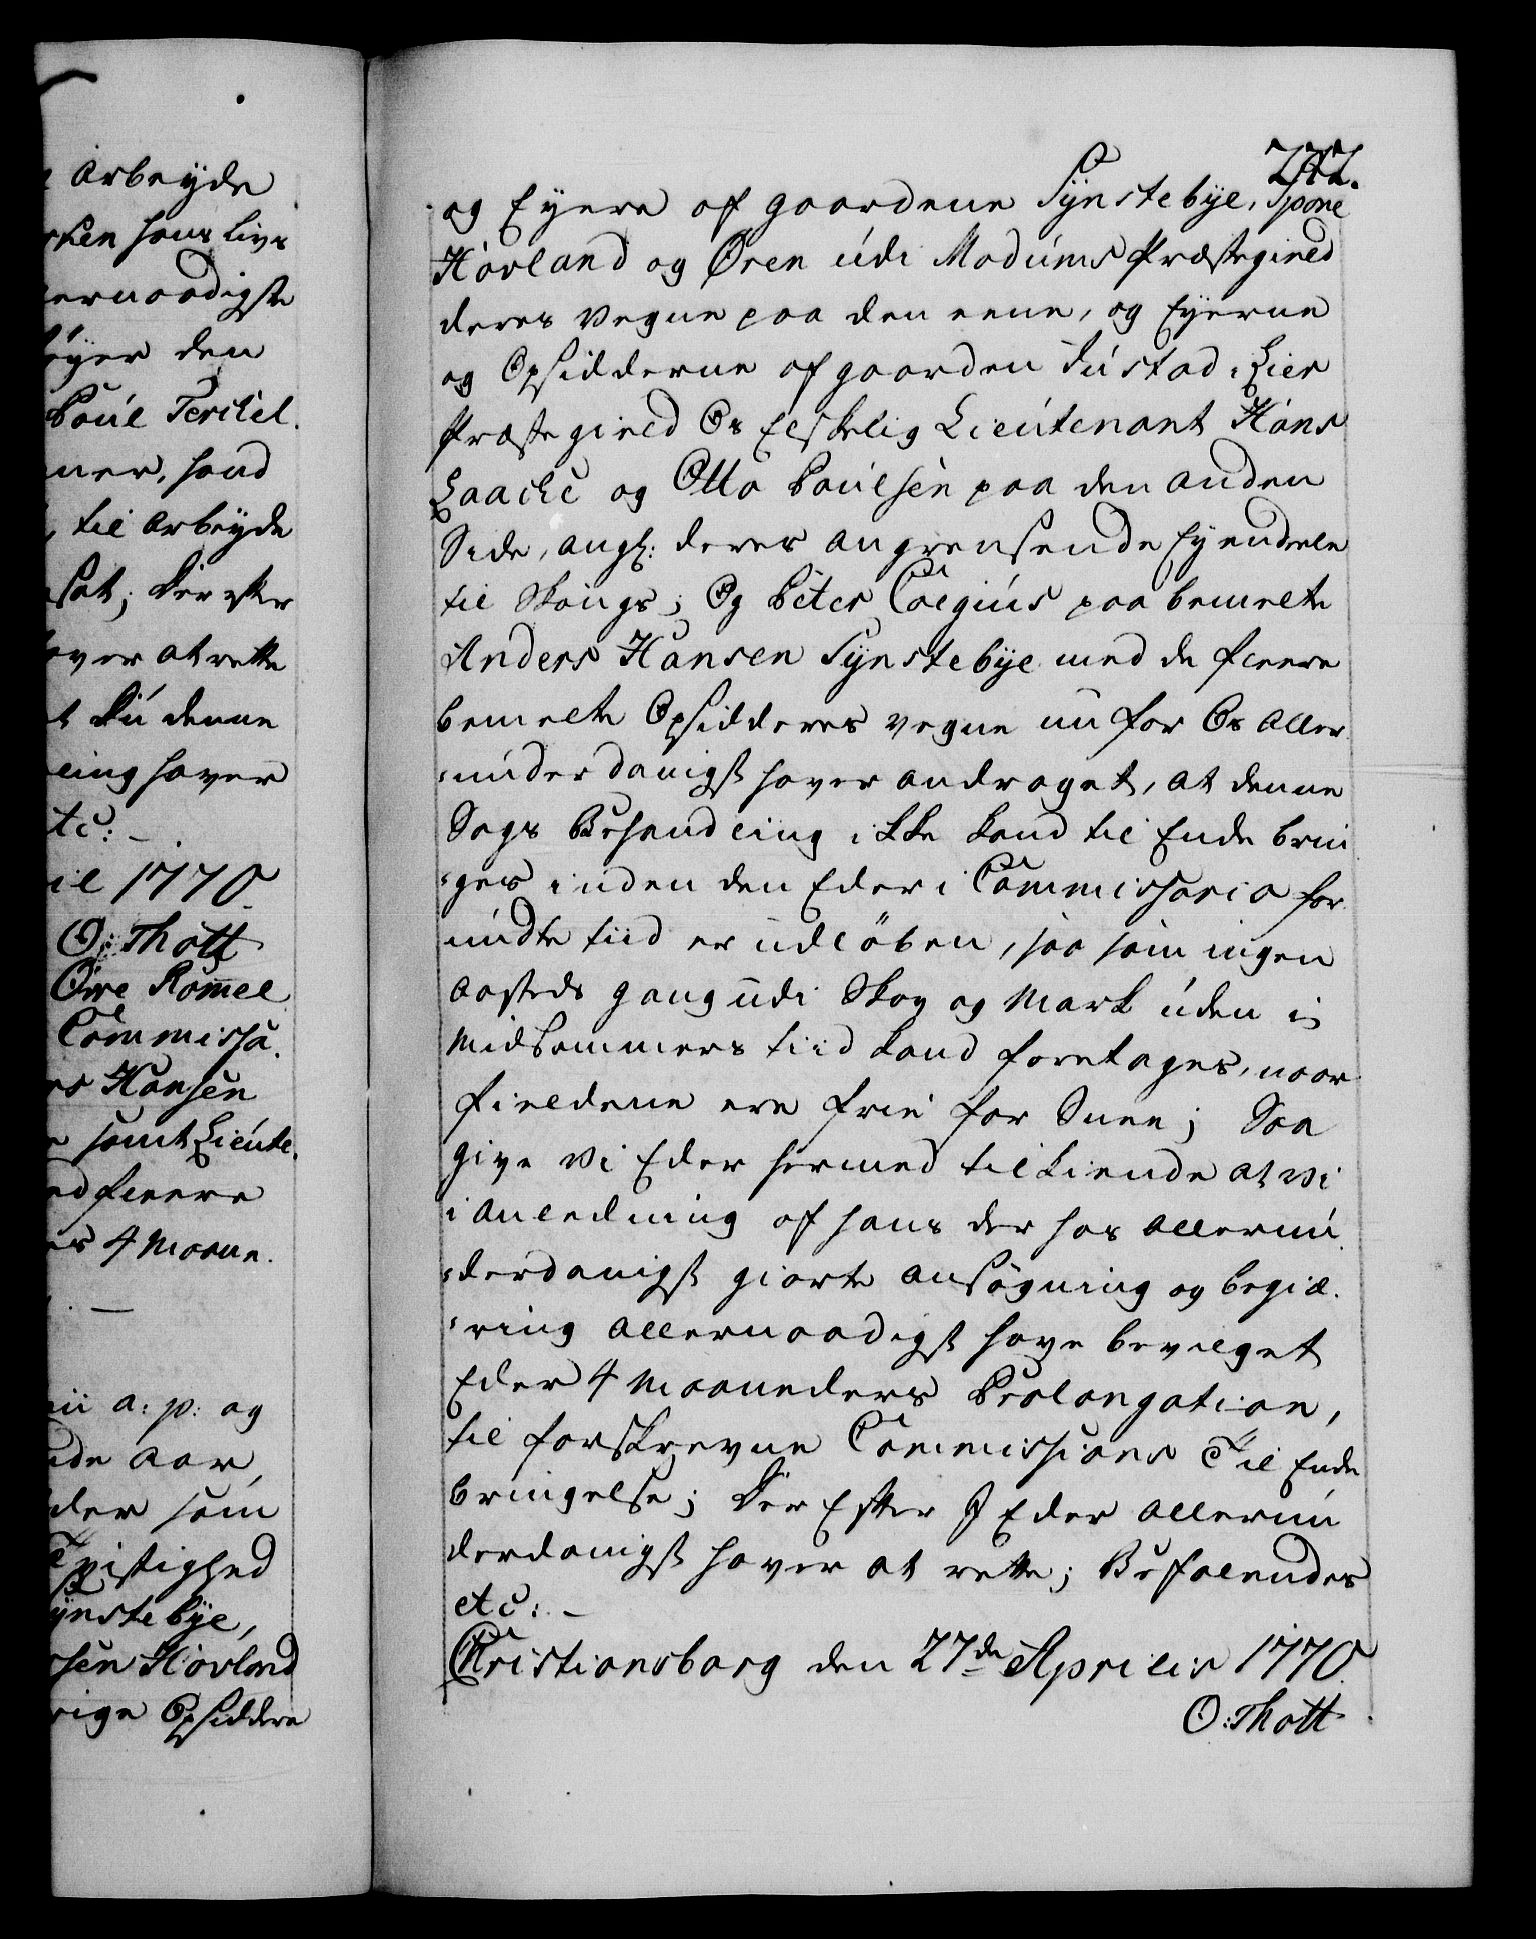 Arbeyde
hans Livs
ernaadigste
øyer den
Poul Terchel.
ner, hand
til Arbeyde
sat; Der efter
over at rette
Du denne
ling haver
etc: –
il 1770.
O: Thott
Ove Rom̄el
Commissa.
Hansen
samt Lieute.
ed fleere
4 Maane.
–
ii a: p: og
de Aar,
der som
Tvistighed
ynstebye,
sen Hovland
rige Opsiddere
242.
og Eyere af gaardene Synstebye, Spone
Hovland og Øren udi Modums Præstegield
deres Vegne paa den eene, og Eyerne
og Opsidderne af gaarden Tustad i Lier
Præstegield Os Elskelig Lieutenant Hans
Laache og Otto Poulsen paa den anden
Side, angl: deres angrensende Eyendele
til Skougs; Og Peter Coegius paa bemelte
Anders Hansen Synstebye med de fleere
bemelte Opsidderes vegne nu for Os Aller
underdanigst haver andraget, at denne
Sags Behandling ikke kand til Ende brin
ges inden den Eder i Commissorio for
undte tiid er udløben, saa som ingen
Aasteds gang udi Skov og Mark uden i
Midsommers tiid kand foretages, naar
fieldene ere frie for Snee; Saa
give Vi Eder hermed tilkiende at Vi
i Anledning af hans der hos allerun
derdanigst giorte Ansøgning og begiæ.
ring Allernaadigst have bevilget
Eder 4 Maaneders Prolongation,
til forskrevne Commissions Til Ende
bringelse; Der Efter I Eder allerun
derdanigst haver at rette; Befalendes
etc: –
Christiansborg den 27de Aprilis 1770.
O: Thott